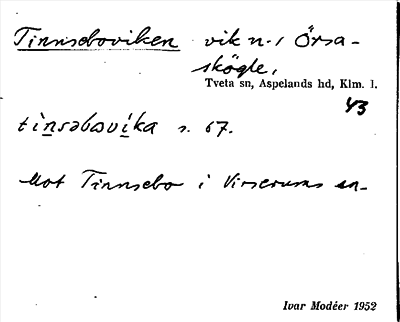 Tinnseboviken vik n. i Örsa-
skögle,
Tveta sn, Aspelands hd, Klm. l.
43
tìnsəbωvi̱ka s. 67.
Mot Tinnsebo i Virserums sn.
Ivar Modéer 1952